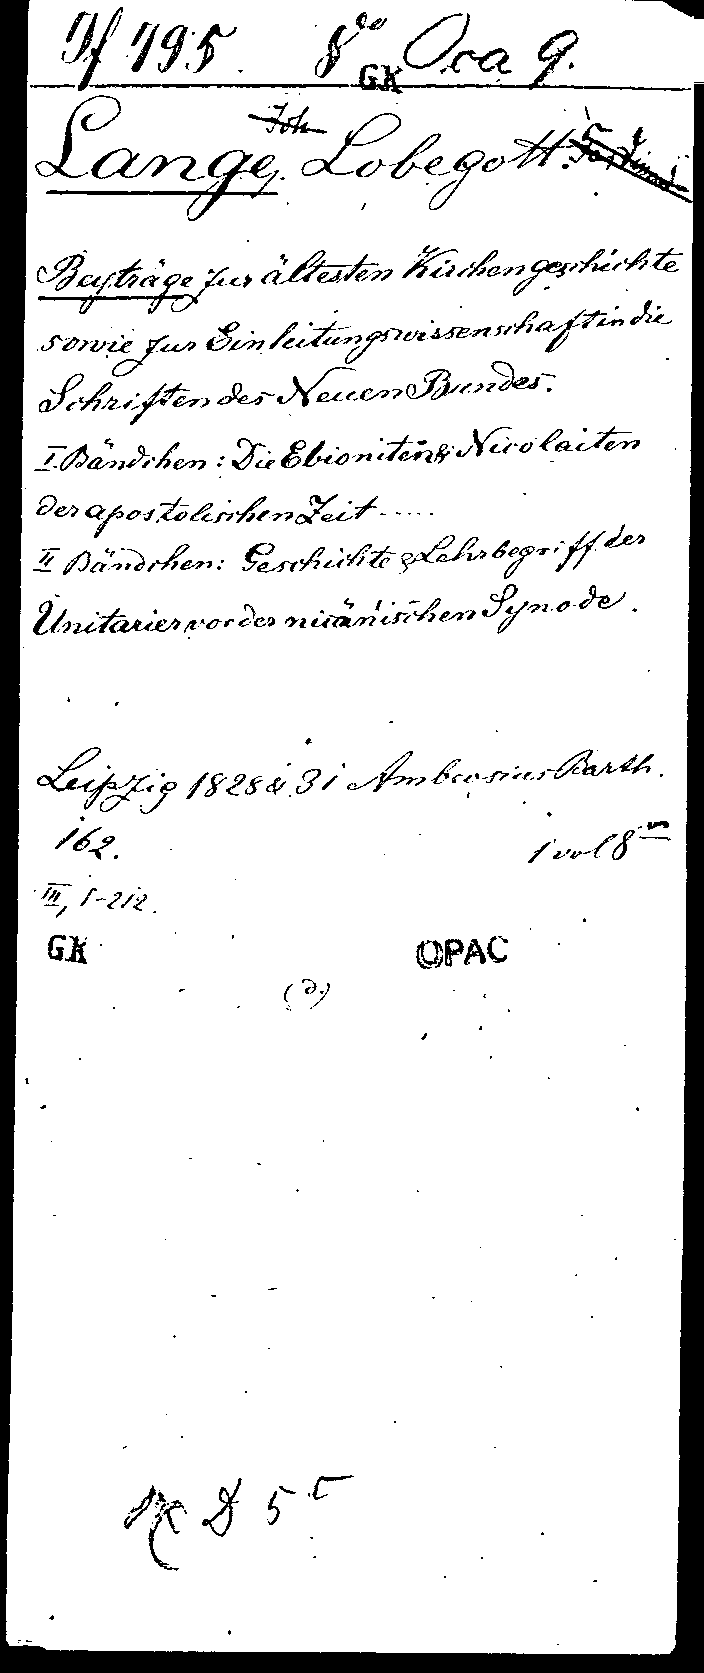 If 795. 8do Oca 9.
GK
Joh
Lange, Lobegott.
Beyträge zur ältesten Kirchengeschichte
sowie zur Einleitungswissenschaft in die
Schriften des Neuen Bundes.
I. Bändchen: Die Ebioniten & Nicolaiten
der apostolischen Zeit .....
II Bändchen: Geschichte & Lehrbegriff der
Unitarier vor der nicänischen Synode.
Leipzig 1828 & 31 Ambrosius Barth.
162. 1 vol 8°
III, 1-212.
GK OPAC
(d)
D 5